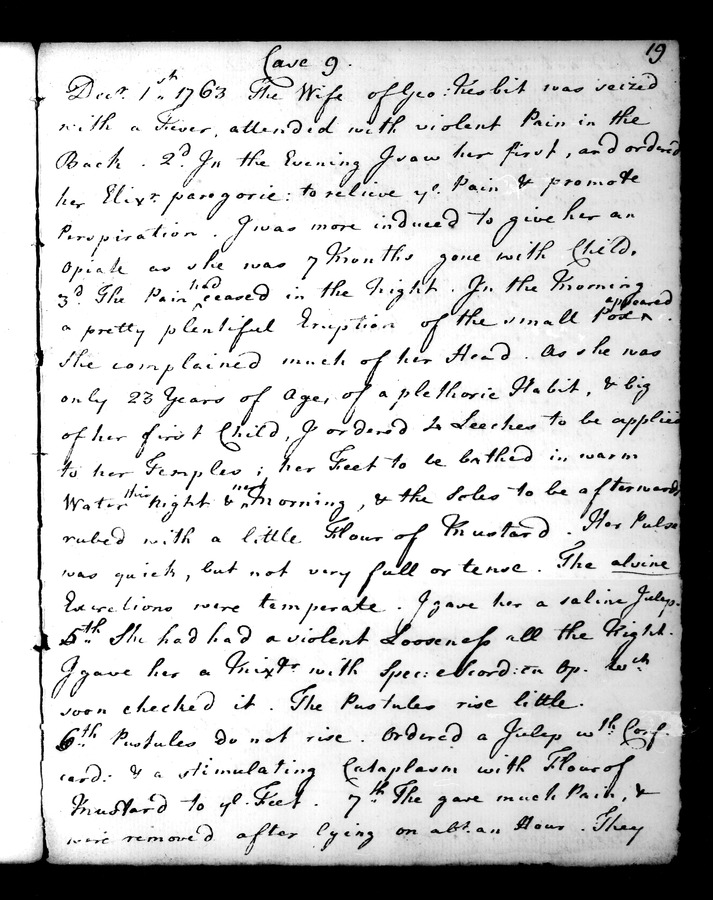 19
Case 9.
Decr. 1st. 1763 The Wife of Geo: Nesbit was seized
with a Fever, attended with violent Pain in the
Back. 2d. In the Evening I saw her first, and ordered
her Elixr. paregoric: to relieve ye. Pain & promote
Perspiration. I was more induced to give her an
Opiate as she was 7 Months gone with Child.
3d. The Pain had ceased in the Night. In the Morning
a pretty plentiful Eruption of the small Pox appeared.
She complained much of her Head. As she was
only 23 Years of Age, of a plethoric Habit, & big
of her first Child, I ordered 4 Leeches to be applied
to her Temples; her Feet to be bathed in warm
Water this Night & next Morning, & the Soles to be afterwards
rubed with a little Flour of Mustard. Her Pulse
was quick, but not very full or tense. The alvine
Excretions were temperate. I gave her a saline Julep.
5th. She had had a violent Looseness all the Night.
I gave her a Mixtr. with Spec: e Scord: cu Op. wch.
soon checked it. The Pustules rise little.
6th. Pustules do not rise. Ordered a Julep wth. Conf.
card: & a stimulating Cataplasm with Flour of
Mustard to ye. Feet. 7th. The gave much Pain, &
were removed after lying on abt. an Hour. They